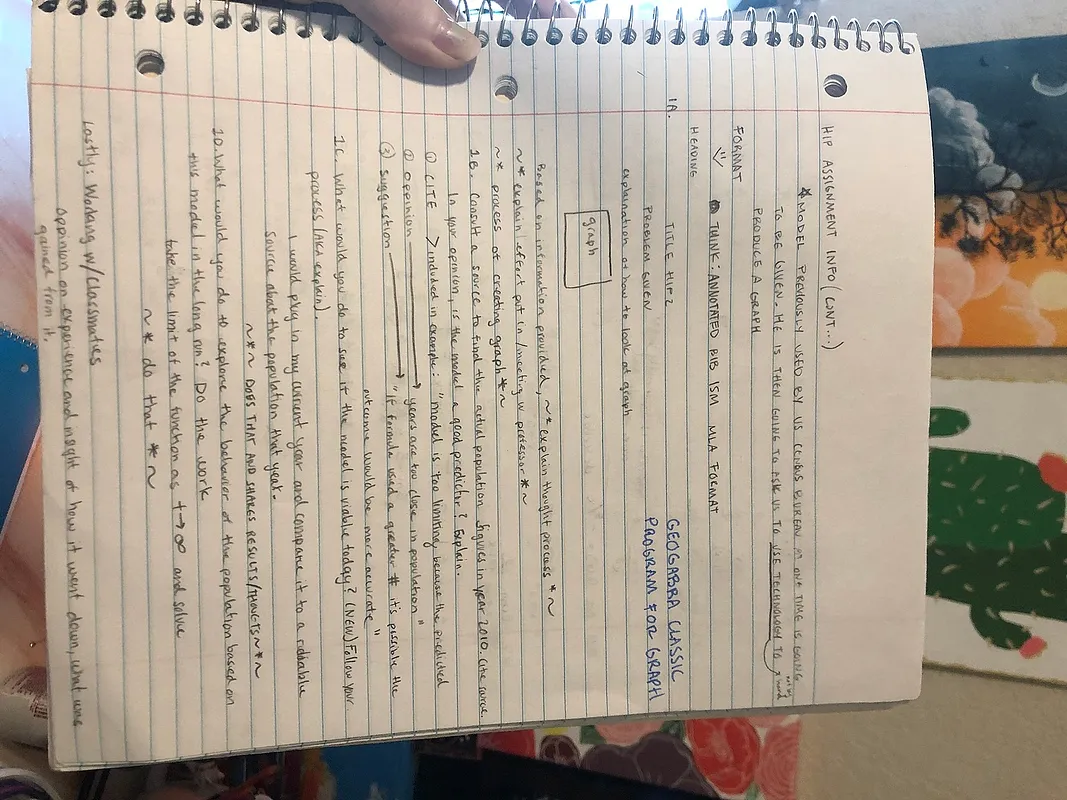 HIP ASSIGNMENT INFO (CONT...)
* MODEL PREVIOUSLY USED BY US CENSUS BUREAU AT ONE TIME IS GOING
TO BE GIVEN. HE IS THEN GOING TO ASK US TO USE TECHNOLOGY TO
not by hand
PRODUCE A GRAPH
FORMAT
THINK: ANNOTATED BIB ISM MLA FORMAT
HEADING
TITLE HIP 2
GEOGABRA CLASSIC
1A.
PROBLEM GIVEN
PROGRAM FOR GRAPH
explaination of how to look at graph
graph
Based on information provided, ~* explain thought process *~
~* explain effort put in/meeting w professor *~
~* process of creating graph *~
1B. Consult a source to find the actual population figures in year 2010. Cite source.
In your opinion, is the model a good predictor? Explain.
① CITE > included in example: "model is too limiting, because the predicted
② opinion years are too close in population"
③ suggestion "if formula used a greater # it's possible the
outcome would be more accurate"
1C. What would you do to see if the model is viable today? (NEW) Follow your
process (AKA explain).
I would plug in my current year and compare it to a
source about the population that year.
~*~ DOES THAT AND SHARES RESULTS/THOUGHTS ~*~
1D. What would you do to explore the behavior of the population based on
this model in the long run? Do the work
take the limit of the function as t→∞ and solve
~* do that *~
Lastly: Working w/classmates
opinion on experience and insight of how it went down, what was
gained from it.